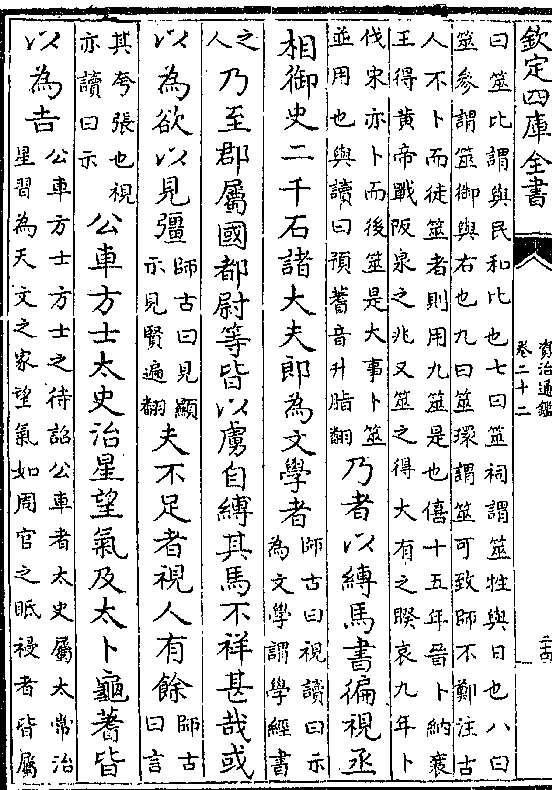 欽定四庫全書
資治通鑑
卷二十二
曰筮比謂與民和比也七曰筮祠謂筮牲與日也八曰
筮參謂筮御與右也九曰筮環謂筮可致師不鄭注古
人不卜而徒筮者則用九筮是也僖十五年晉卜納襄
王得黄帝戰阪泉之兆又筮之得大有之睽哀九年卜
伐宋亦卜而後筮是大事卜筮
並用也與讀曰預蓍音升脂翻
乃者以縛馬書徧視丞
相御史二千石諸大夫郎為文學者
師古曰視讀曰示
為文學謂學經書
之
人
乃至郡屬國都尉等皆以虜自縛其馬不祥甚哉或
以為欲以見彊
師古曰見顯
示見賢遍翻
夫不足者視人有餘
師古
曰言
其夸張也視
亦讀曰示
公車方士太史治星望氣及太卜龜蓍皆
以為吉
公車方士方士之待詔公車者太史屬太常治
星習為天文之家望氣如周官之眡祲者皆屬